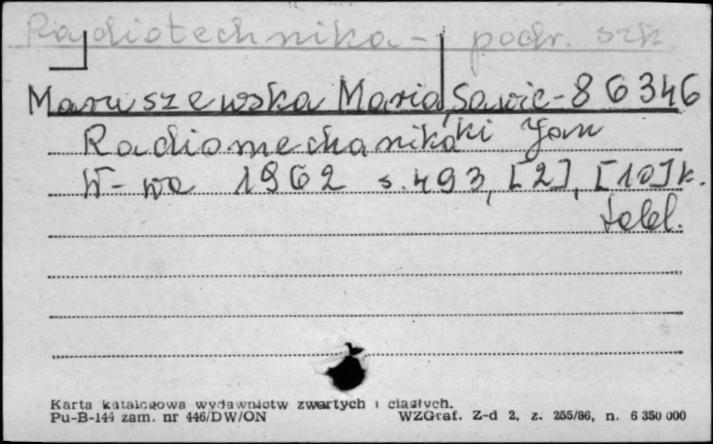 Radiotechnika - podr. szk
Maruszewska Maria, Sawic- 86346
Radiomechanika ki Jan
W-wa 1962 s. 493, [2], [10] k.
tabl.
Karta katalogowa wydawnictw zwartych i ciągłych.
Pu-B-144 zam. nr 446/DW/ON WZGraf. Z-d 2, z. 255/86, n. 6 350 000